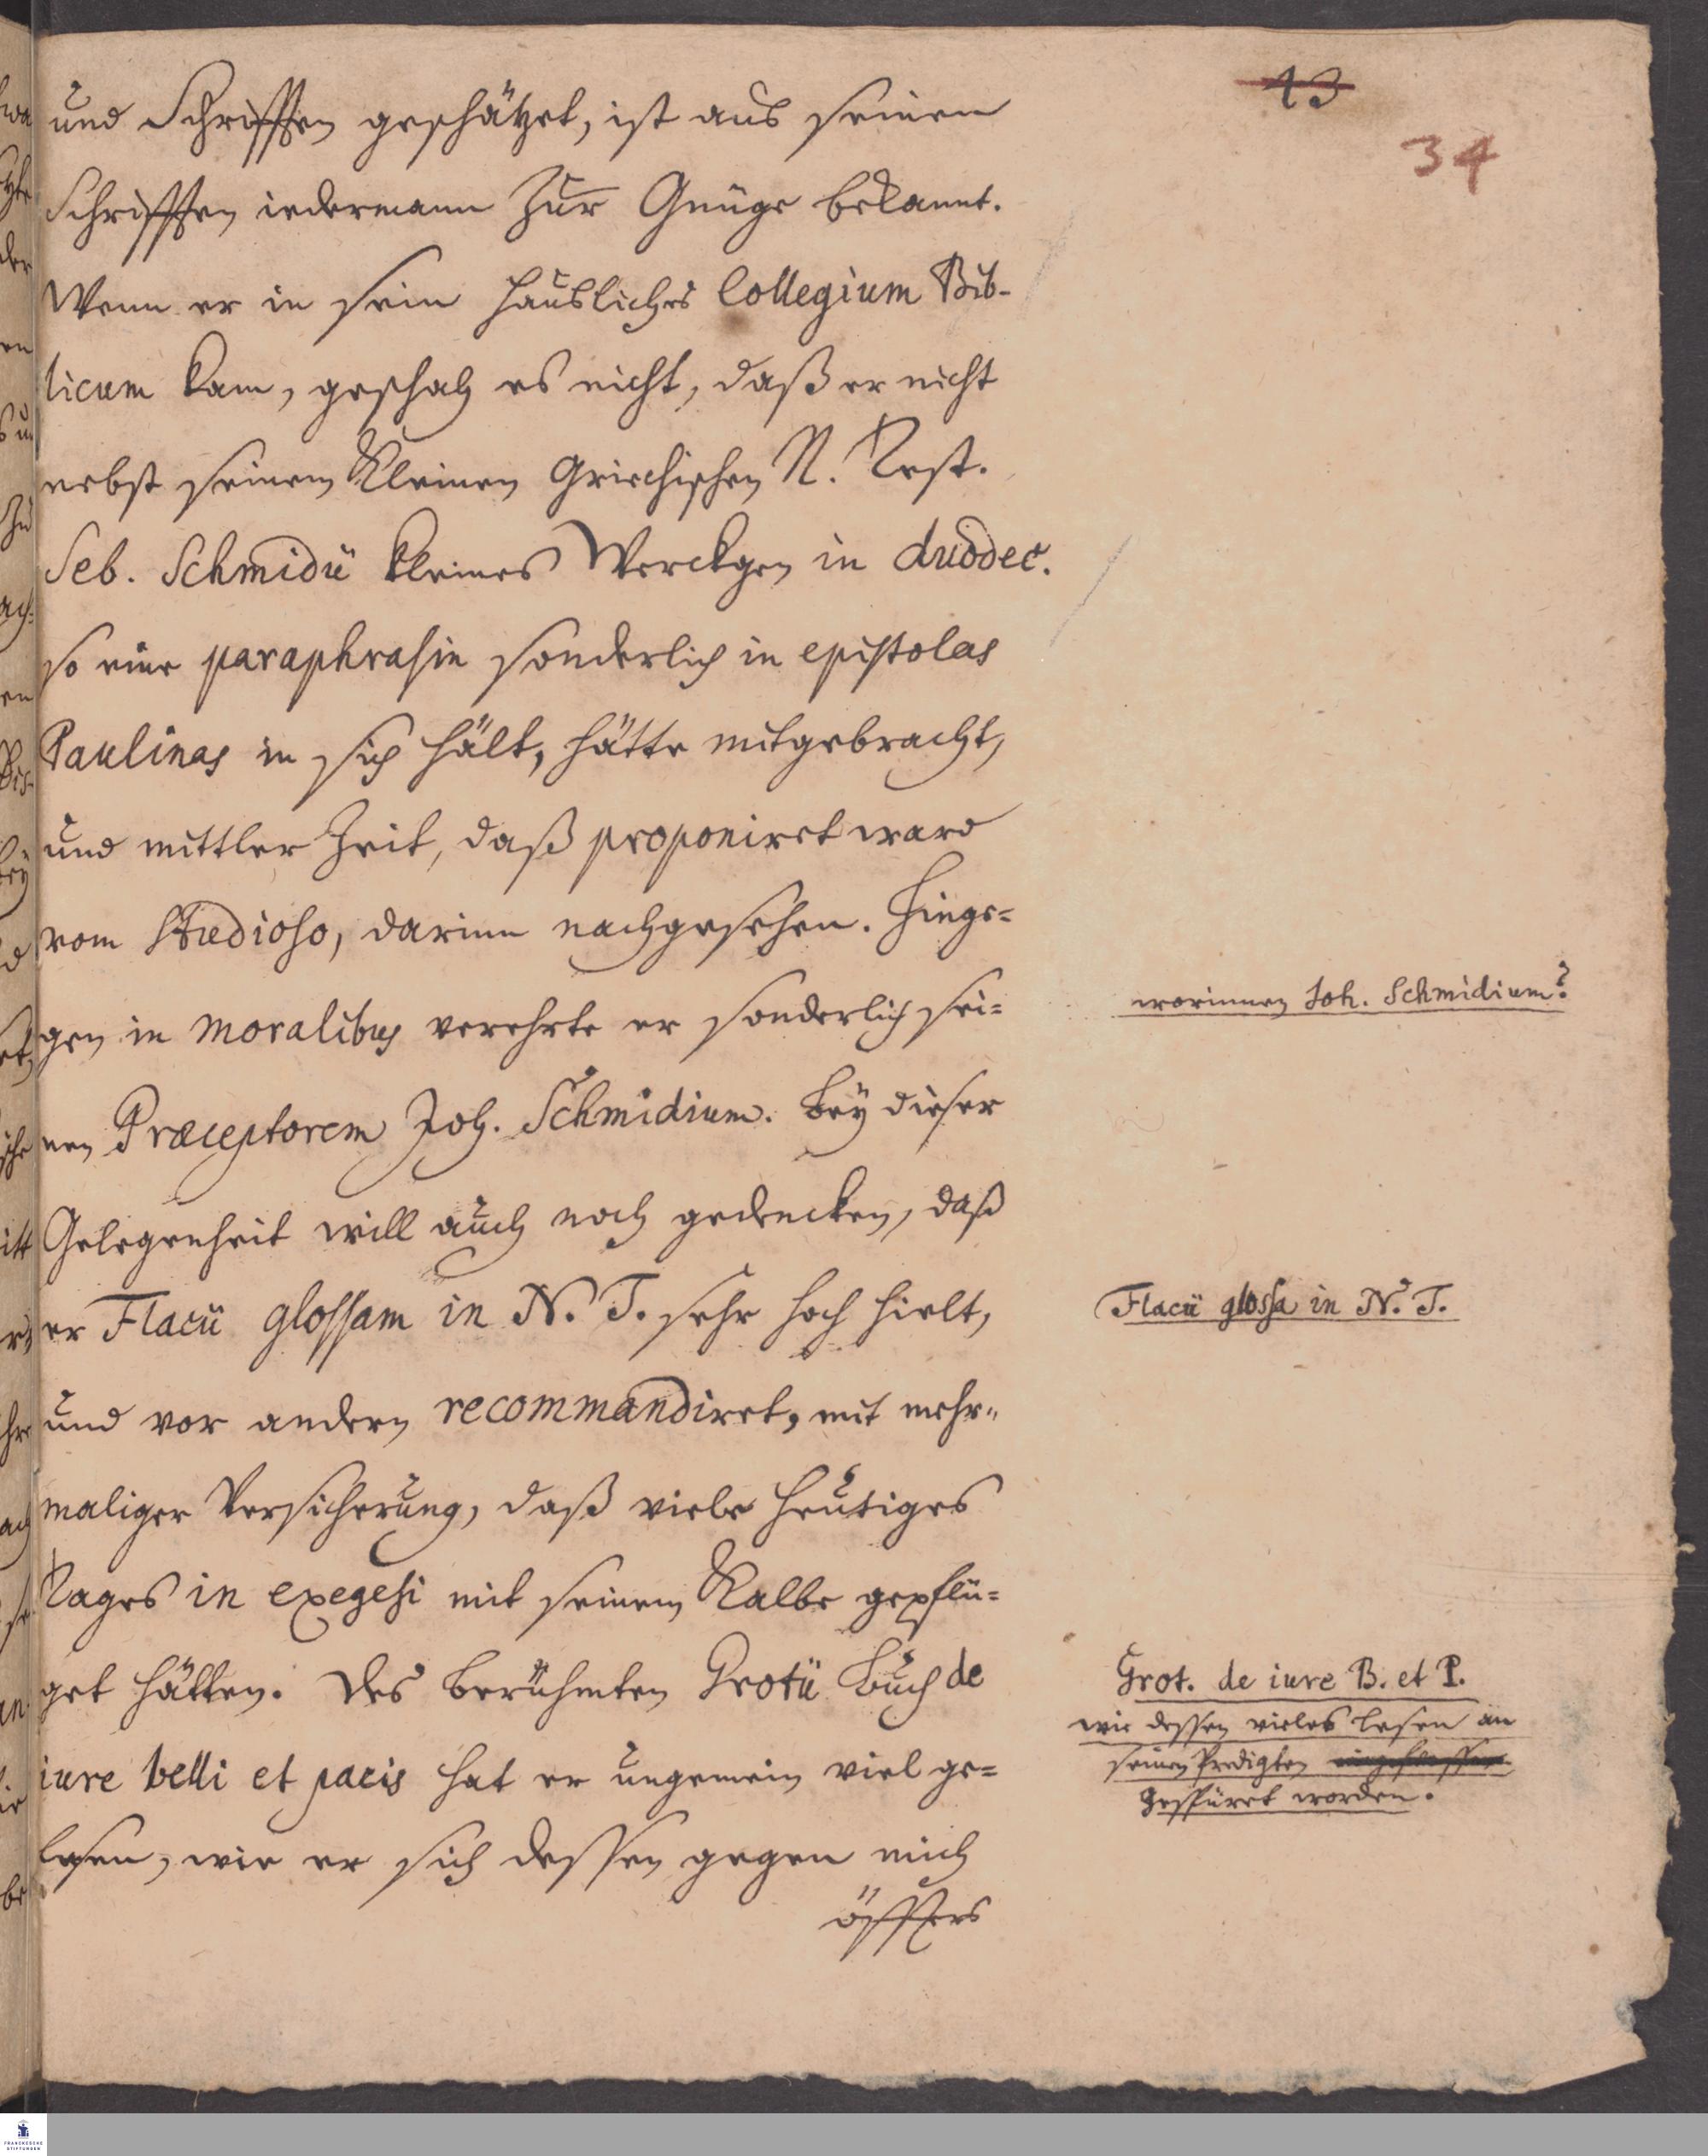 13
34
und Schrifften geschätzet, ist aus seinen
Schrifften iedermann Zur Gnüge bekannt.
Wenn er in sein häusliches Collegium Bib-
licum kam, geschah es nicht, daß er nicht
nebst seinem Kleinen Griechischen N. Test.
Seb. Schmidii kleines Werckgen in duodec.
so eine paraphrasin sonderlich in epistolas
Paulinas in sich hält, hätte mitgebracht,
und mittler Zeit, daß proponiret ward
vom Studioso, darinn nachgesehen. Hinge=
gen in moralibus verehrte er sonderlich sei=
nen Præceptorem Joh. Schmidium. Bey dieser
Gelegenheit will auch noch gedencken, daß
er Flacii glossam in N. T. sehr hoch hielt,
und vor andern recommandiret, mit mehr=
maliger Versicherung, daß viele heutiges
Tages in exegesi mit seinem Kalbe gepflü=
get hätten. Des berühmten Grotii Buch de
iure belli et pacis hat er ungemein viel ge=
lesen, wie er sich dessen gegen mich
öffters
worinnen Joh. Schmidium?
Flacii glossa in N. T.
Grot. de iure B. et P.
wie dessen vieles lesen an
seinen Predigten eingeflossen
gespüret worden.
FRANCKESCHE
STIFTUNGEN